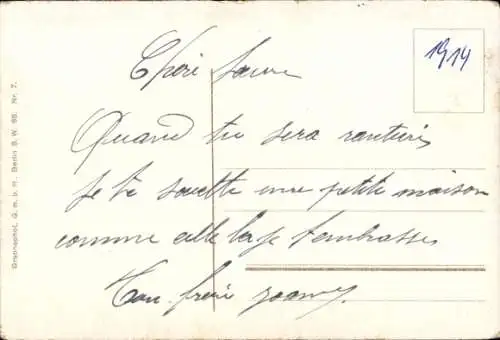 1914
Chère Soeur
Quand tu sera rentier
Je te souette une petite maison
comme celle la je t'embrasse
Ton frère
Graphophot, G. m. b. H., Berlin S. W. 68. Nr. 7.